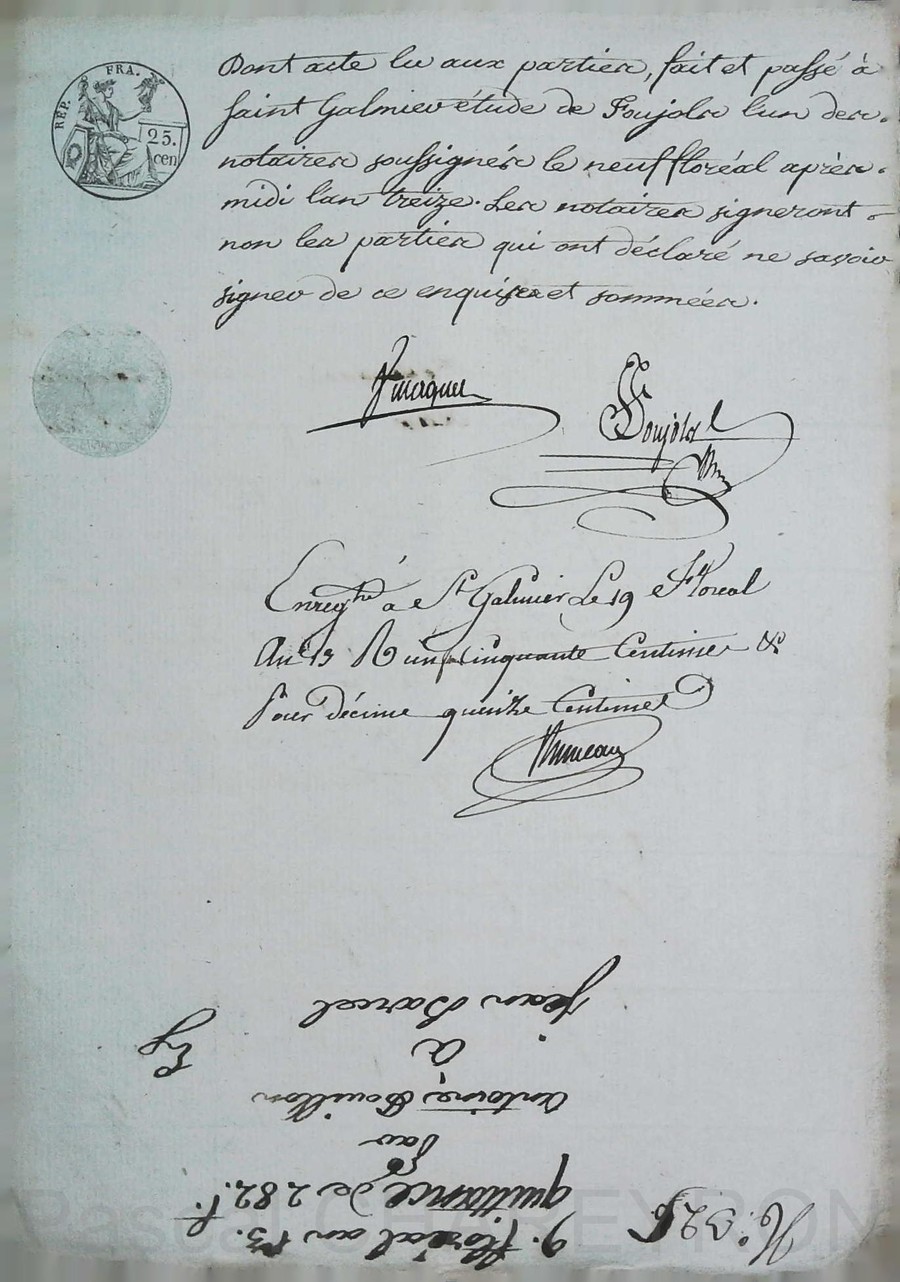 RÉP. FRA.
25.
cen
Dont acte lu aux parties, fait et passé à
saint Galmier étude de Foujols l'un des
notaires soussignés le neuf floréal après
midi l'an treize. Les notaires signeront
non les parties qui ont déclaré ne savoir
signer de ce enquises et sommées.
Foujols
Enregtré à St Galmier Le 19 Floreal
An 13 R un f cinquante Centimes &
Pour décime quinze Centimes
Jean Barcel
à
Antoine Bouillon
par
quittance de 282 f.
9. floréal an 13.
No. 325
Pascal CHAREYRON